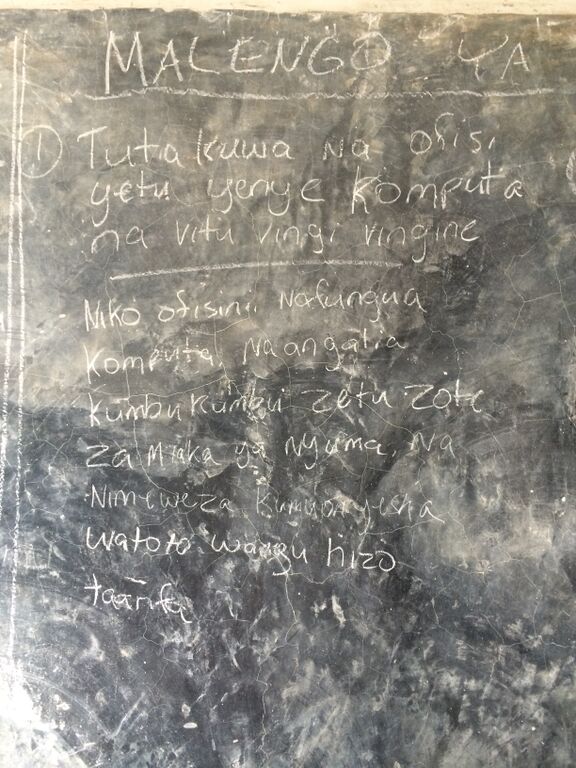 MALENGO YA
① Tutakuwa na ofisi
yetu yenye komputa
na vitu vingi vingine
Niko ofisini nafungua
komputa, naangalia
kumbukumbu zetu zote
za miaka ya nyuma, na
Nimeweza kumuonyesha
watoto wangu hizo
taarifa